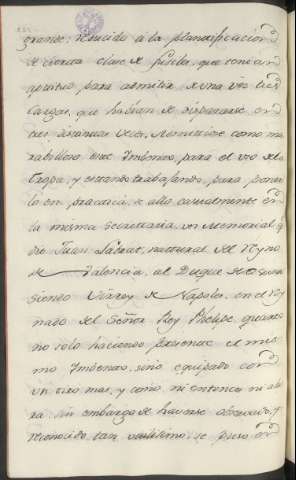 grande: reducido à la planteficacion
de cierta clase de fusiles, que tenian
aptitud para admitir de una vez tres
Cargas, que habian de dispararse en
tres distancias. Y como ma
rabilloso este Imbento, para el uso de la
Tropa, y estando trabajando para poner
lo en practica, se allò casualmente en
la misma Secretaria, un Memorial q.
dio Juan natural del Reyno
de Valencia, al Duque de Osuna
siendo Virrey de Napoles, en el Rey
nado del Señor Rey Phelipe quarto
no solo haciendo presente el mis
mo Imbento, sino equipado con
un tiro mas, y como ni entonces ni aho
ra sin embargo de haverse observado, y
reconocido tan utilisimo, se puso en